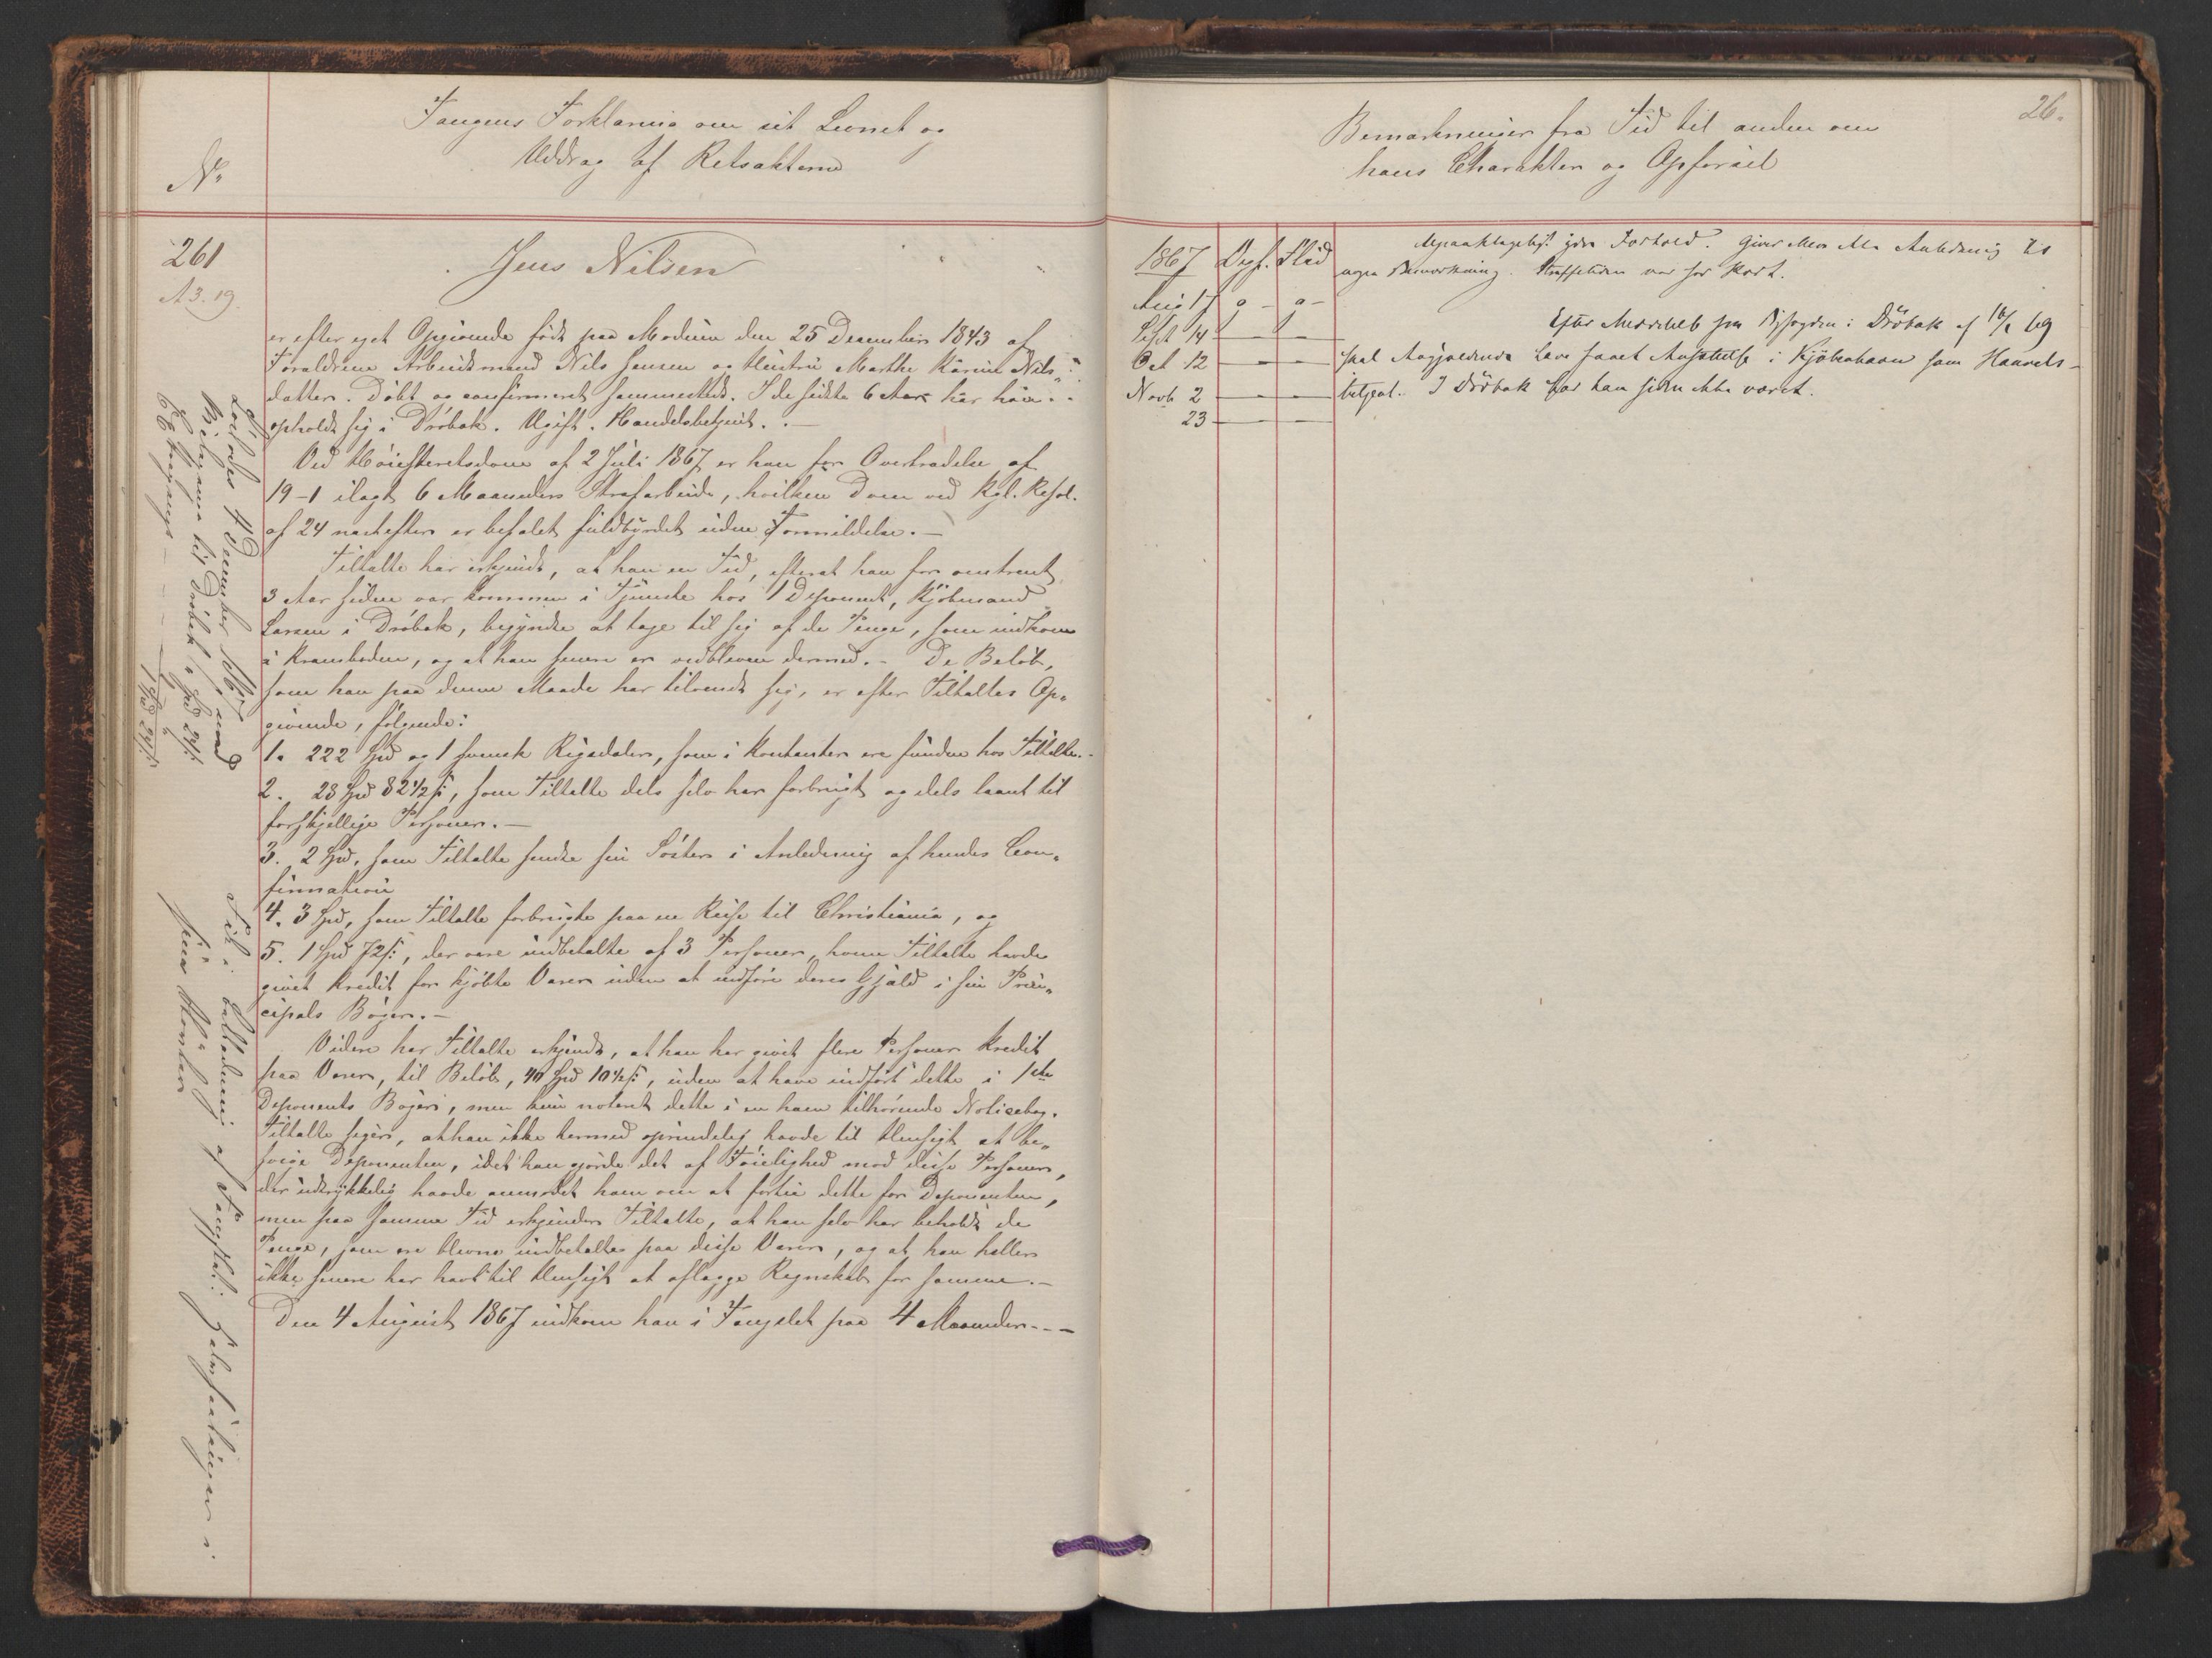 Fangens Forklaring om sit Levnet og
Uddrag af Retsakterne
No
261
A3.19.
Jens Nilsen
er efter eget Opgivende født paa Modum den 25 December 1843 af
Forældrene Arbeidsmand Nils Jensen og Hustru Marthe Karine Nils-
datter. Døbt og confirmeret sammesteds. I de sidste 6 Aar har han
opholdt sig i Drøbak. Ugift. Handelsbetjent. —
Ved Høiesteretsdom af 2 Juli 1867 er han for Overtrædelse af
19-1 ilagt 6 Maaneders Strafarbeide, hvilken Dom ved Kgl. Resol.
af 24 næstefter er befalet fuldbyrdet uden Formildelse. —
Tiltalte har erkjendt, at han en Tid, efterat han for omtrent
3 Aar siden var kommen i Tjeneste hos 1 Deponent, Kjøbmand
Larsen i Drøbak, begyndte at tage til sig af de Penge, som indkom
i Kramboden, og at han senere er vedbleven dermed. — De Beløb,
som han paa denne Maade har tilvendt sig, er efter Tiltaltes Op-
givende, følgende:
1. 222 Spd og 1 svensk Rigsdaler, som i Kontanter ere fundne hos Tiltalte.
2. 28 Spd 82 1/2 s, som Tiltalte dels selv har forbrugt og dels laant til
forskjellige Personer. —
3. 2 Spd, som Tiltalte sendte sin Søster i Anledning af hendes Con-
firmation
4. 3 Spd, som Tiltalte forbrugte paa en Reise til Christiania, og
5. 1 Spd 72 s, der vare indbetalte af 3 Personer, hvem Tiltalte havde
givet Kredit for kjøbte Varer uden at indføre deres Gjæld i sin Prin-
cipals Bøger. —
Videre har Tiltalte erkjendt, at han har givet flere Personer Kredit
paa Varer, til Beløb, 40 Spd 10 1/2 s, uden at have indført dette i 1ste
Deponents Bøger, men kun noteret dette i en ham tilhørende Noticebog.
Tiltalte siger, at han ikke hermed oprindelig havde til Hensigt at be-
svige Deponenten, idet han gjorde det af Føielighed mod disse Personer,
der udtrykkelig havde anmodet ham om at fortie dette for Deponenten,
men paa samme Tid erkjender Tiltalte, at han selv har beholdt de
Penge, som ere blevne indbetalte paa disse Varer, og at han heller
ikke senere har havt til Hensigt at aflægge Regnskab for samme. —
Den 4 August 1867 indkom han i Fængslet paa 4 Maaneder. —
Løslodes 4 December 1867 med
Fik i Anledning af Fængslets
26.
Bemærkninger fra Tid til anden om
hans Charakter og Opførsel
1867 Opf. Flid
Aug 17 g - g -
Sept 14 — —
Oct 12 — —
Novb 2 — —
23 — —
Upaaklageligt ydre Forhold. Giver mer ikke Anledning til
nogen Bemærkning. Straffetiden var for kort.
Efter Meddelelse fra Byfogden i Drøbak af
skal Angjældende have faaet Ansættelse i Kjøbenhavn som Handels-
betjent. I Drøbak har han siden ikke været.